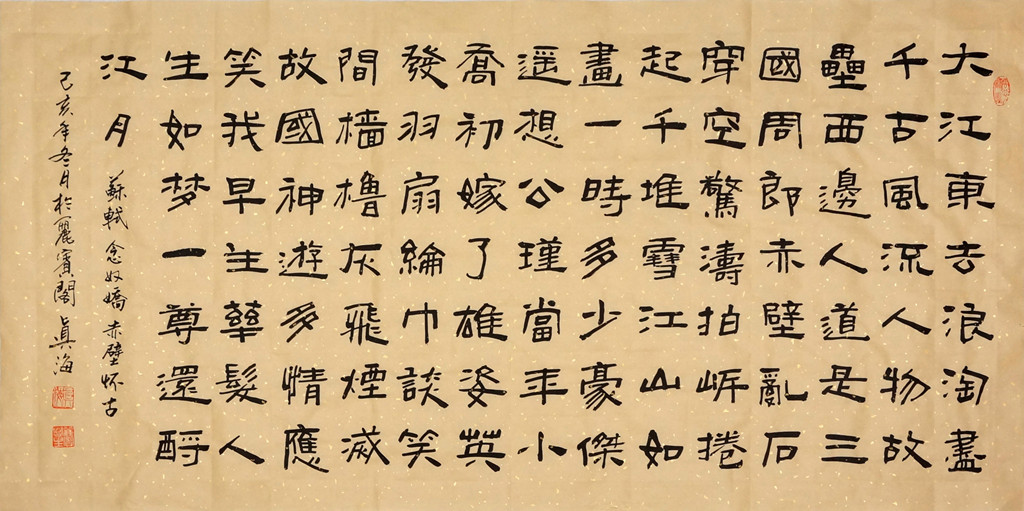 大江東去浪淘盡
千古風流人物故
壘西邊人道是三
國周郎赤壁亂石
穿空驚濤拍岸捲
起千堆雪江山如
畫一時多少豪傑
遥想公瑾當年小
喬初嫁了雄姿英
發羽扇綸巾談笑
間檣櫓灰飛煙滅
故國神遊多情應
笑我早生華髮人
生如梦一尊還酹
江月
蘇軾 念奴嬌 赤壁怀古
己亥年冬月於麗賓閣 眞海